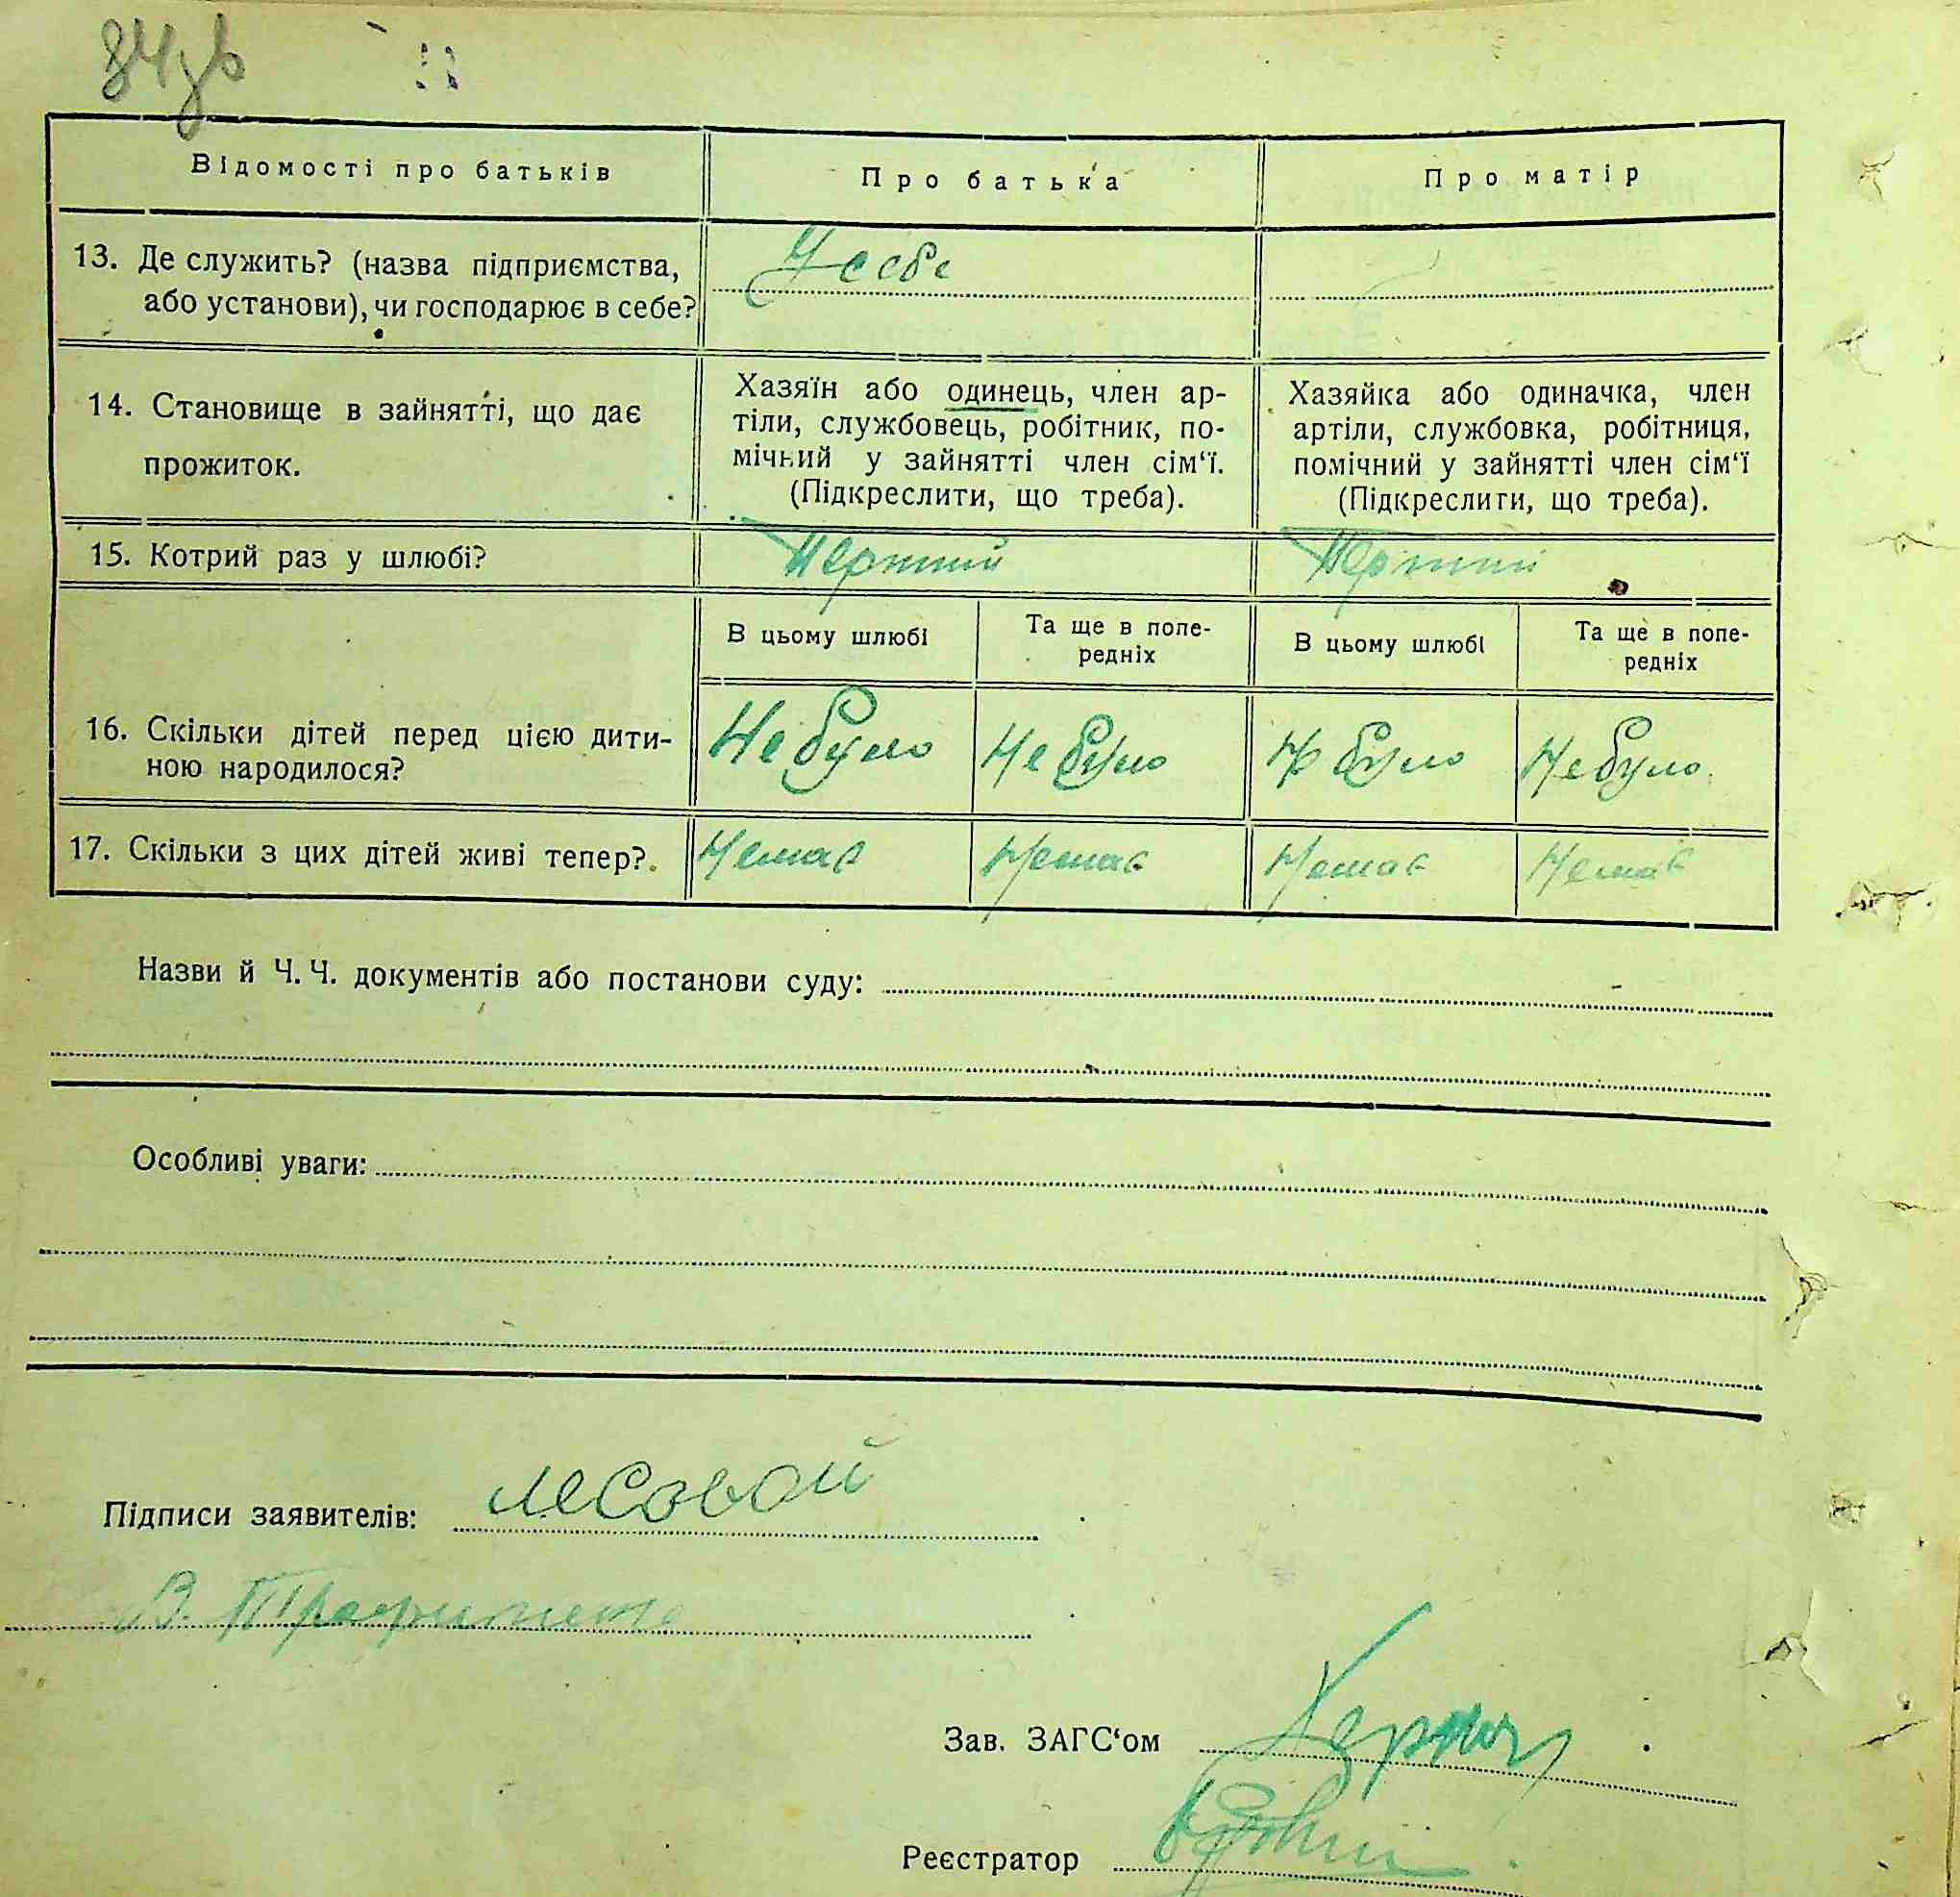 84зв
Відомості про батьків
Про батька
Про матір
13. Де служить? (назва підприємства,
або установи), чи господарює в себе?
У себе
14. Становище в зайнятті, що дає
прожиток.
Хазяїн або одинець, член ар-
тіли, службовець, робітник, по-
мічний у зайнятті член сім‘ї.
(Підкреслити, що треба).
Хазяйка або одиначка, член
артіли, службовка, робітниця,
помічний у зайнятті член сім‘ї
(Підкреслити, що треба).
15. Котрий раз у шлюбі?
Перший
Перший
В цьому шлюбі
Та ще в попе-
редніх
В цьому шлюбі
Та ще в попе-
редніх
16. Скільки дітей перед цією дити-
ною народилося?
Не було
Не було
Не було
Не було
17. Скільки з цих дітей живі тепер?
Немає
Немає
Немає
Немає
Назви й Ч. Ч. документів або постанови суду:
Особливі уваги:
Підписи заявителів: Лесовой
В.
Зав. ЗАГС‘ом
Реєстратор